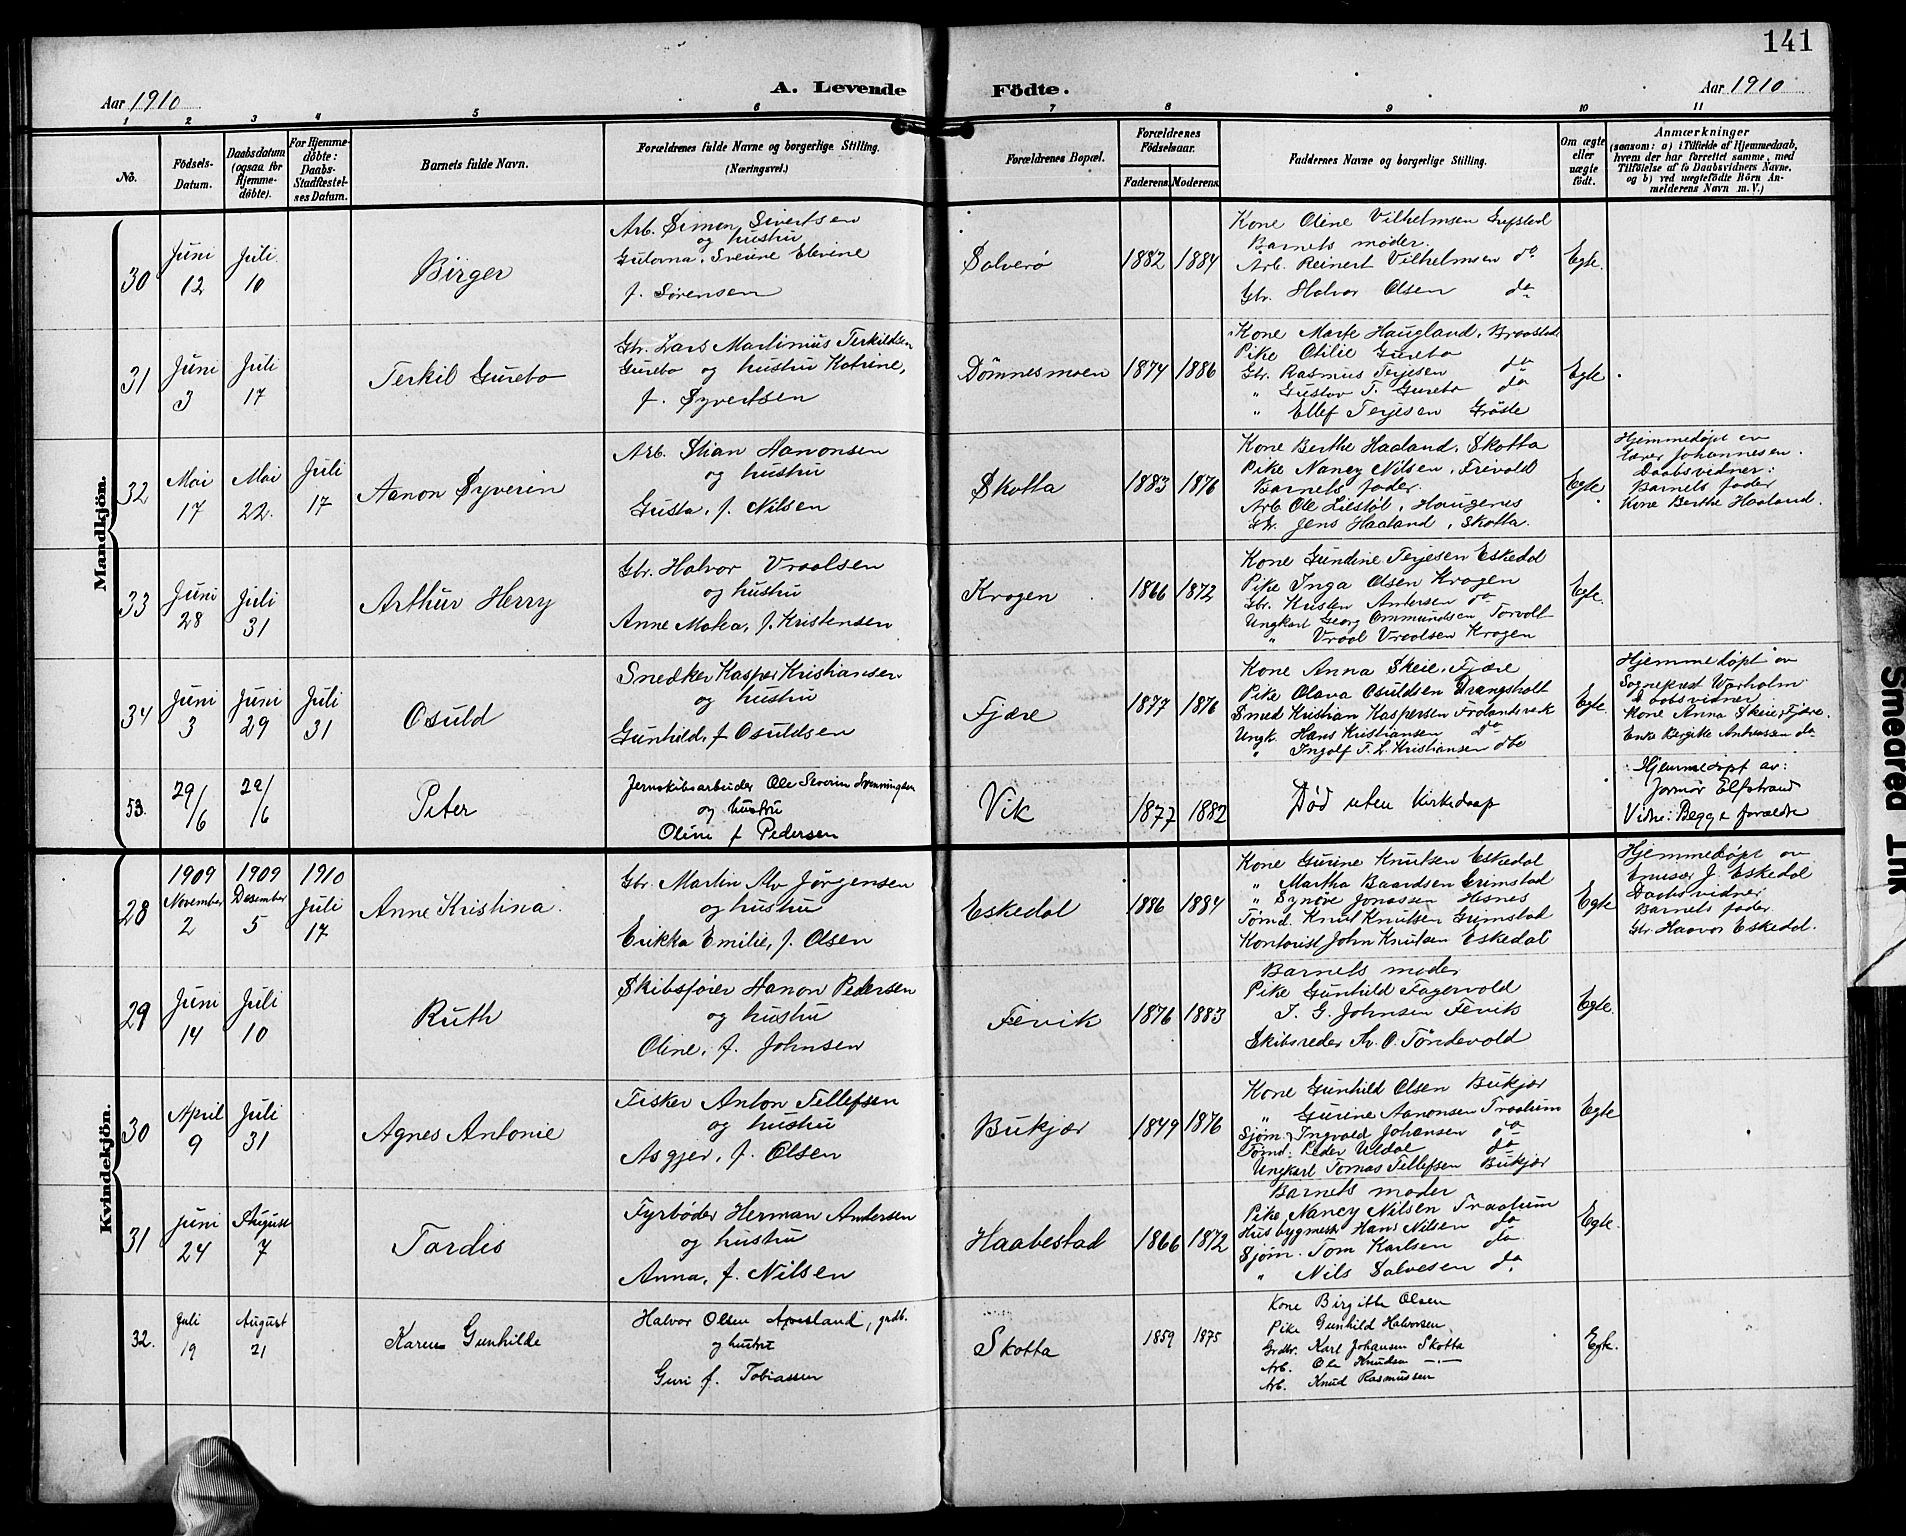 141
Aar 1910
A. Levende Födte.
Aar 1910
1 2 3 4 5 6 7 8 9 10 11
No.
Födsels-
Datum.
Daabsdatum
(ogsaa for
Hjemme-
döbte).
For Hjemme-
döbte:
Daabs-
Stadfæstel-
ses Datum.
Barnets fulde Navn.
Forældrenes fulde Navne og borgerlige Stilling.
(Næringsvei.)
Forældrenes Bopæl.
Forældrenes
Födselsaar.
Faderens. Moderens.
Faddernes Navne og borgerlige Stilling.
Om ægte
eller
uægte
födt.
Anmærkninger
(saasom: a) i Tilfælde af Hjemmedaab,
hvem der har forrettet samme, med
Tilföielse af to Daabsvidners Navne,
og b) ved uægtefödte Börn An-
melderens Navn m. V.)
Mandkjön.
30
Juni
12
Juli
10
Birger
Arb. Simon Sivertsen
og hustru
f. Sørensen
Salverö
1882 1884
Kone Oline Vilhelmsen
Barnets moder.
Arb. Reinert Vilhelmsen do
Gbr. Halvor Olsen do
Egte.
31
Juni
3
Juli
17
Terkil Gurebo
Gbr. Lars Martinius Terkildsen
Gurebo og hustru Katrine,
f. Syvertsen
Dömnesmoen
1874 1886
Kone Marte Haugland, Braastad
Pike Otilie Gurebo
Gbr. Rasmus Terjesen do
" Gustav T. Gurebo do
" Ellef Terjesen Gröste
Egte
32
Mai
17
Mai
22.
Juli
17
Aanon Syverin
Arb. Stian Aanonsen
og hustru
Gusta, f. Nilsen
Skotta
1883 1876
Kone Berthe Haaland, Skotta
Pike Nancy Nilsen, Frivold
Barnets fader.
Arb. Ole Liestøl, Haugenes
Gbr. Jens Haaland, Skotta.
Egte
Hjemmedøpt av
Johannesen.
Daabsvidner:
Barnets fader
Kone Berthe Haaland.
33
Juni
28
Juli
31
Arthur Herry
Gbr. Halvor Vraalsen
og hustru
Anne Maka, f. Kristensen
Krogen
1866 1872
Kone Gundine Terjesen Eskedal
Pike Inga Olsen Krogen
Gbr. Kristen Andersen do
Ungkarl Georg Ommundsen Torvolt
" Vraal Vraalsen Krogen
Egte.
34
Juni
3
Juni
29
Juli
31
Osuld
Snedker Kasper Kristiansen
og hustru
Gunhild, f Osuldsen
Fjære
1877 1876
Kone Anna Skeie, Fjære
Pike Olava Osuldsen Drangsholt
Smed Kristian Kaspersen Frolandsvek
Ungk. Hans Kristiansen do
" Ingolf T. L. Kristiansen do
Egte.
Hjemmedøpt av
Sogneprest Warholm
Daabsvidner
Kone Anna Skeie, Fjære.
Enke Bergitte Andreassen do
53.
29/6
29/6
Peter
Jernskibsarbeider Ole Severin Svenningsen
og hustru
Oline f Pedersen
Vik
1877 1882
Död uten kirkedaap
Hjemmedøpt av:
Jormor Elfstrand
Vidne: Begge forældre
Kvindekjön.
28
1909
November
2
1909
Desember
5
1910
Juli
17
Anne Kristina.
Gbr. Martin Alv Jørgensen
og hustru
Erikka Emilie, f. Olsen
Eskedal
1886 1884
Kone Gurine Knutsen Eskedal
" Martha Baardsen Grimstad
" Synøve Jonassen Hesnes
Tömd. Knut Knutsen Grimstad
Kontorist John Knutsen Eskedal
Egte
Hjemmedøpt av
J. Eskedal
Daabsvidner
Barnets fader
Gbr. Haavor Eskedal.
29
Juni
14
Juli
10
Ruth
Skibsfører Aanon Pedersen
og hustru
Oline, f. Johnsen
Fevik
1876 1883
Barnets moder
Pike Gunhild Fagervold
J. G. Johnsen Fevik
Skibsreder Av. O. Töndevold
Egte.
30
April
9
Juli
31
Agnes Antonie
Fisker Anton Tellefsen
og hustru
Asgjer, f. Olsen
Bukjær
1849 1876
Kone Gunhild Olsen Bukjær
" Gurine Aanonsen Traalum
Sjøm. Ingvald Johansen do
Tömd. Peder Uldal do
Ungkarl Tomas Tellefsen Bukjær
Egte
31
Juni
24
August
7
Tordis
Fyrbøder Herman Andersen
og hustru
Anna, f. Nilsen
Haabestad
1866 1872
Barnets moder
Pike Nancy Nilsen Traalum
Husbygmestr. Hans Nilsen do
Sjøm. Tom Karlsen do
" Nils Salvesen do
Egte.
32.
Juli
19
August
21
Karen Gunhilde
Halvor Olsen Aresland, grdb.
og hustru
Guri f. Tobiassen
Skotta
1859 1875
Kone Birgitte Olsen
Pike Gunhild Halvorsen
Grdbr. Karl Johansen Skotta
Arb. Ole Knudsen —
Arb. Knud Rasmussen
Egte.
Smeared Ink